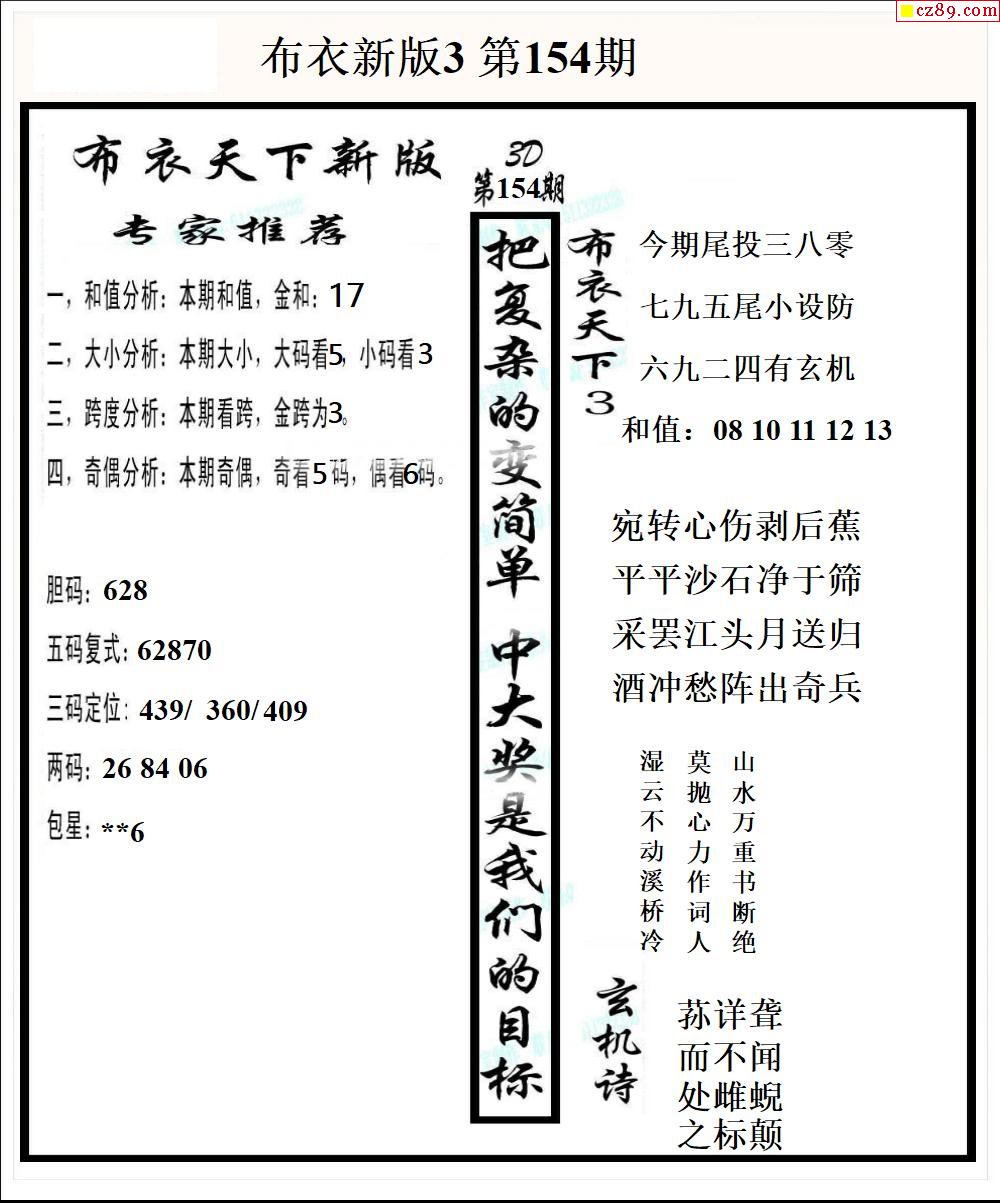 cz89.com
布衣新版3 第154期
布衣天下新版
专家推荐
一，和值分析：本期和值，金和：17
二，大小分析：本期大小，大码看5，小码看3
三，跨度分析：本期看跨，金跨为3。
四，奇偶分析：本期奇偶，奇看5码，偶看6码。
胆码：628
五码复式：62870
三码定位：439/ 360/409
两码：26 84 06
包星：**6
3D
第154期
把复杂的变简单 中大奖是我们的目标
布衣天下3
今期尾投三八零
七九五尾小设防
六九二四有玄机
和值：08 10 11 12 13
宛转心伤剥后蕉
平平沙石净于筛
采罢江头月送归
酒冲愁阵出奇兵
山水万重书断绝
莫抛心力作词人
湿云不动溪桥冷
玄机诗
荪详聋
而不闻
处雌蜺
之标颠